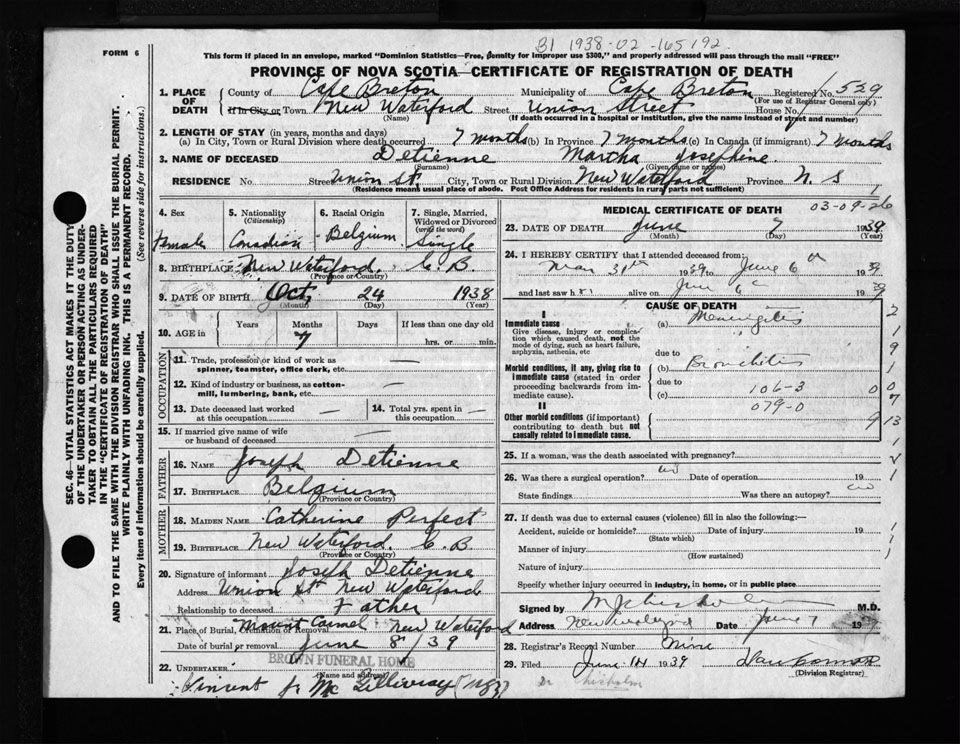 FORM 6
B1 1938-02-165192
This form if placed in an envelope, marked "Dominion Statistics—Free, penalty for improper use $300," and properly addressed will pass through the mail "FREE"
PROVINCE OF NOVA SCOTIA—CERTIFICATE OF REGISTRATION OF DEATH
1. PLACE OF DEATH County of Cape Breton Municipality of Cape Breton Registered No. 529
(For use of Registrar General only)
If in City or Town New Waterford Street Union Street House No.
(Name) (If death occurred in a hospital or institution, give the name instead of street and number)
2. LENGTH OF STAY (in years, months and days)
(a) In City, Town or Rural Division where death occurred 7 months (b) In Province 7 months (c) In Canada (if immigrant) 7 months
3. NAME OF DECEASED Detienne Martha Josephine
(Surname) (Given name or names)
RESIDENCE No. Street Union St. City, Town or Rural Division New Waterford Province N. S
(Residence means usual place of abode. Post Office Address for residents in rural parts not sufficient)
4. Sex Female
5. Nationality (Citizenship) Canadian
6. Racial Origin Belgium
7. Single, Married, Widowed or Divorced (write the word) Single
8. BIRTHPLACE New Waterford, C. B.
(Province or Country)
9. DATE OF BIRTH Oct. 24 1938
(Month) (Day) (Year)
10. AGE in Years Months Days If less than one day old
7 hrs. or min.
OCCUPATION
11. Trade, profession or kind of work as spinner, teamster, office clerk, etc. —
12. Kind of industry or business, as cotton-mill, lumbering, bank, etc. —
13. Date deceased last worked at this occupation —
14. Total yrs. spent in this occupation —
15. If married give name of wife or husband of deceased —
FATHER
16. NAME Joseph Detienne
17. BIRTHPLACE Belgium
(Province or Country)
MOTHER
18. MAIDEN NAME Catherine Perfect
19. BIRTHPLACE New Waterford, C. B
(Province or Country)
20. Signature of informant Joseph Detienne
Address Union St New Waterford
Relationship to deceased Father
21. Place of Burial, Cremation or Removal Mount Carmel New Waterford
Date of burial or removal June 8/39
BROWN FUNERAL HOME
22. UNDERTAKER
(Name and address)
Vincent J. McGillivray
MEDICAL CERTIFICATE OF DEATH 03-09-26
23. DATE OF DEATH June 7 1939
(Month) (Day) (Year)
24. I HEREBY CERTIFY that I attended deceased from:
May 31st 1939 to June 6th 1939
and last saw h alive on June 6 1939
CAUSE OF DEATH
I
Immediate cause (a) Meningitis
Give disease, injury or complication which caused death, not the mode of dying, such as heart failure, asphyxia, asthenia, etc
due to
Morbid conditions, if any, giving rise to immediate cause (stated in order proceeding backwards from immediate).
(b) Bronchitis
due to
(c) 106-3
079-0
II
Other morbid conditions (if important) contributing to death but not causally related to immediate cause.
25. If a woman, was the death associated with pregnancy?
26. Was there a surgical operation? no Date of operation 19
State findings Was there an autopsy? no
27. If death was due to external causes (violence) fill in also the following:—
Accident, suicide or homicide? Date of injury 19
(State which)
Manner of injury
(How sustained)
Nature of injury
Specify whether injury occurred in industry, in home, or in public place
Signed by M.D.
Address New Waterford Date June 7 1939
28. Registrar's Record Number Nine
29. Filed June 14 1939
(Division Registrar)
Dr Chisholm
SEC. 46—VITAL STATISTICS ACT MAKES IT THE DUTY
OF THE UNDERTAKER OR PERSON ACTING AS UNDER-
TAKER TO OBTAIN ALL THE PARTICULARS REQUIRED
IN THE "CERTIFICATE OF REGISTRATION OF DEATH"
AND TO FILE THE SAME WITH THE DIVISION REGISTRAR WHO SHALL ISSUE THE BURIAL PERMIT.
WRITE PLAINLY WITH UNFADING INK. THIS IS A PERMANENT RECORD.
Every item of information should be carefully supplied. (See reverse side for instructions.)